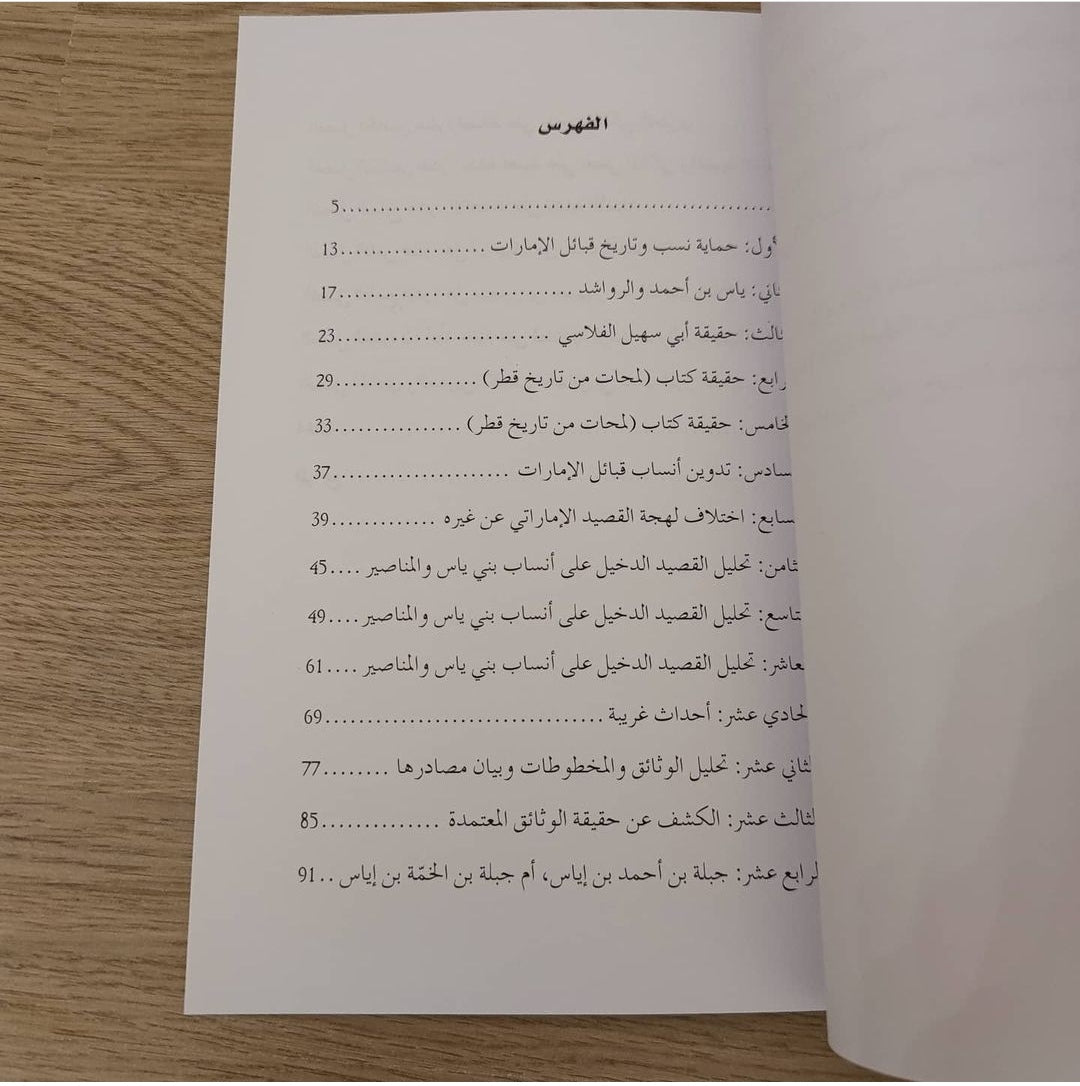 الفهرس
.......................................................5
حماية نسب وتاريخ قبائل الإمارات ..................13
ياس بن أحمد والرواشد ............................17
حقيقة أبي سهيل الفلاسي ..........................23
حقيقة كتاب (لمحات من تاريخ قطر) ................29
حقيقة كتاب (لمحات من تاريخ قطر) ................33
تدوين أنساب قبائل الإمارات ......................37
اختلاف لهجة القصيد الإماراتي عن غيره .............39
تحليل القصيد الدخيل على أنساب بني ياس والمناصير ....45
تحليل القصيد الدخيل على أنساب بني ياس والمناصير ....49
تحليل القصيد الدخيل على أنساب بني ياس والمناصير ....61
عشر: أحداث غريبة ................................69
عشر: تحليل الوثائق والمخطوطات وبيان مصادرها ........77
عشر: الكشف عن حقيقة الوثائق المعتمدة ..............85
عشر: جبلة بن أحمد بن إياس، أم جبلة بن الخمّة بن إياس ..91